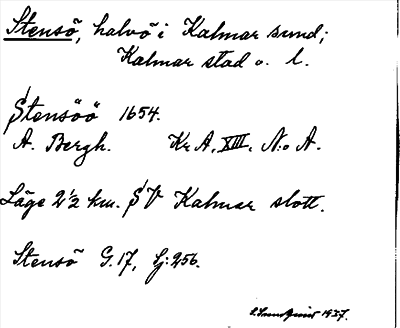 Stensö, halvö i Kalmar sund;
Kalmar stad o. l.
Stensöö 1654.
A. Bergh. Kr A, XIII, N:o A.
Läge 2 1/2 km. SV Kalmar slott.
Stensö G. 17, Sj: 256.
1937.